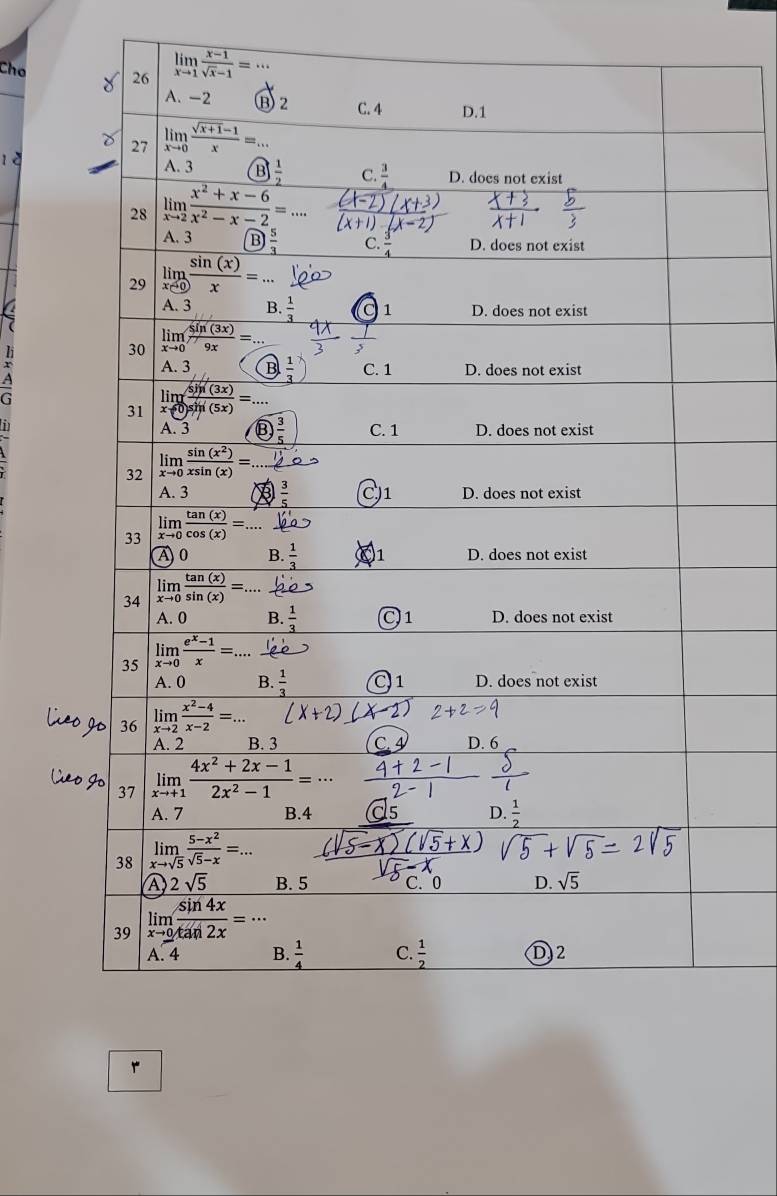 Cho
26 lim x→1 (x−1)/(√x−1) = ···
A. −2 B 2 C. 4 D.1
27 lim x→0 (√(x+1)−1)/x =...
A. 3 B 1/2 C. 3/4 D. does not exist
28 lim x→2 (x² + x − 6)/(x² − x − 2) = .... (x-2)(x+3)/(x+1)(x-2) x+3/x+1 5/3
A. 3 B 5/3 C. 3/4 D. does not exist
29 lim x→0 sin (x)/x = ...
A. 3 B. 1/3 C 1 D. does not exist
30 lim x→0 sin (3x)/9x =...
A. 3 B. 1/3 C. 1 D. does not exist
31 lim x→0 sin (3x)/sin (5x) =....
A. 3 B. 3/5 C. 1 D. does not exist
32 lim x→0 sin (x²)/xsin (x) =....
A. 3 B 3/5 C. 1 D. does not exist
33 lim x→0 tan (x)/cos (x) =....
A 0 B. 1/3 C 1 D. does not exist
34 lim x→0 tan (x)/sin (x) =....
A. 0 B. 1/3 C. 1 D. does not exist
35 lim x→0 (eˣ−1)/x =....
A. 0 B. 1/3 C. 1 D. does not exist
36 lim x→2 (x²−4)/(x−2) =... (x+2)(x-2) 2+2=4
A. 2 B. 3 C. 4 D. 6
37 lim x→+1 (4x² + 2x − 1)/(2x² − 1) = ··· 4+2-1/2-1 5/1
A. 7 B.4 C.5 D. 1/2
38 lim x→√5 (5−x²)/(√5−x) =... (√5-x)(√5+x)/√5-x √5+√5=2√5
A. 2 √5 B. 5 C. 0 D. √5
39 lim x→0 sin 4x/tan 2x = ···
A. 4 B. 1/4 C. 1/2 D. 2
٣